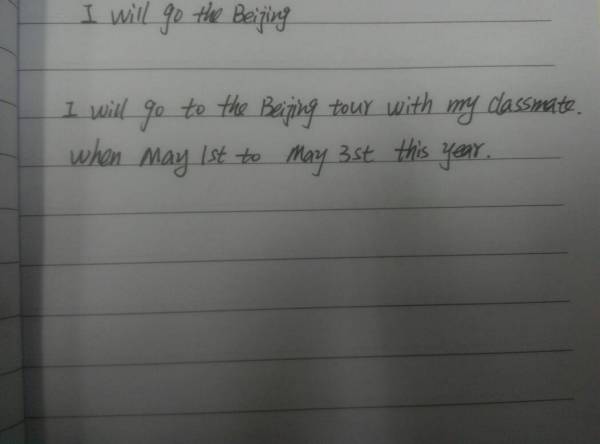 I will go the Beijing
I will go to the Beijing tour with my classmate.
when May 1st to May 3st this year.